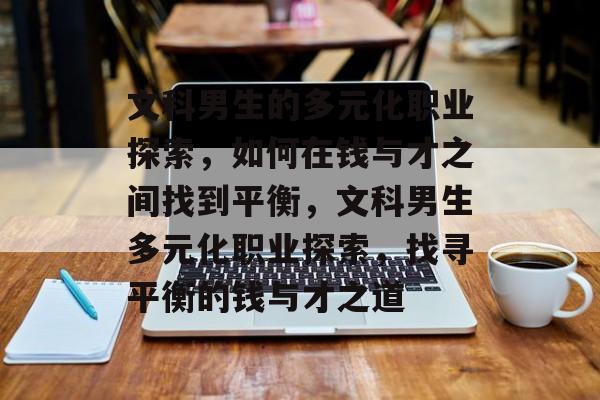 文科男生的多元化职业
探索，如何在钱与才之
间找到平衡，文科男生
多元化职业探索，找寻
平衡的钱与才之道